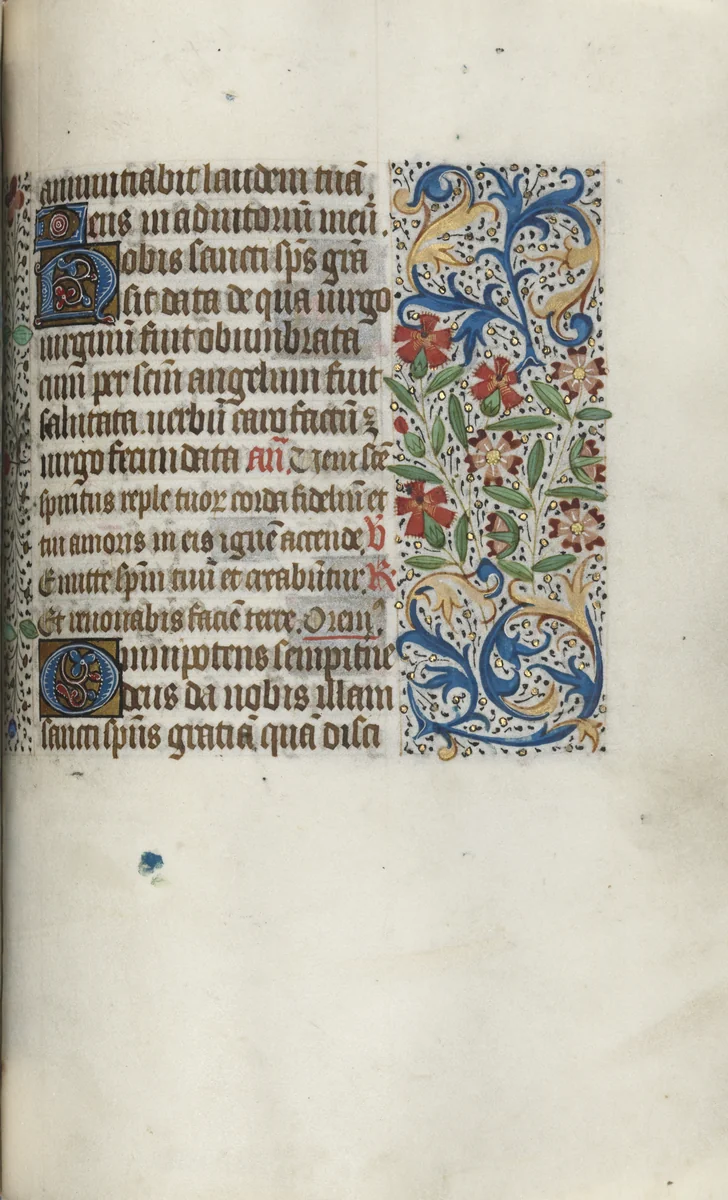 annuntiabit laudem tuā
Deus in adiutoriū meū.
Nobis sancti sp̄s gr̄a
sit data de qua uirgo
uirginū fuit obiumbrata
cum per sc̄m angelum fuit
salutata uerbū caro factū ⁊
uirgo fecundata Añ. Veni sc̄e
spiritus reple tuoꝝ corda fideliū et
tui amoris in eis ignē accende. V
Emitte sp̄m tuū et creabūtur. R.
Et renouabis faciē terre. Orem⁹
Omnipotens sempit̄ne
deus da nobis illam
sancti sp̄us gratiā quā disci